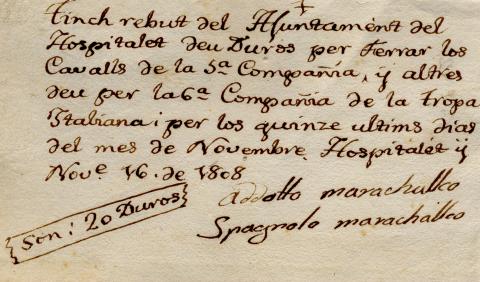 Tinch rebut del Ajuntament del
Hospitalet deu Duros per Ferrar los
Cavalls de la 5ª Compañia, y altres
deu per la 6ª Compañia de la tropa
Italiana i per los quinze ultims dias
del mes de Novembre. Hospitalet y
Nove. 16. de 1808
addotto marachallco
Spagnolo marachallco
Son: 20 Duros